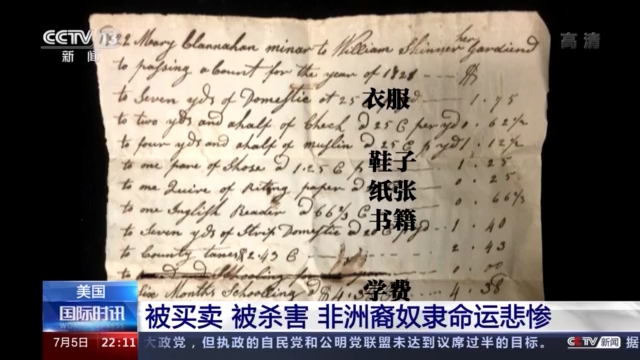 CCTV 13
新闻
高清
2 Mary Clannahan minar to William Skinner her Gardiend
to passing acount for the year of 1828 $
to Seven yds of Domestic at 25 1.75
衣服
to two yds and ahalf of Check @ 25 C per yd 0.62½
to four yds and ahalf of muslin @ 25 C p yd 1.12½
to one pare of Shose @ 1.25 C p 1.25
鞋子
to one Quire of Riting paper @ 0.25
纸张
to one Inglish Reader @ 66⅔ C 0.66⅔
书籍
to Seven yds of Strip Domestic @ 20 C 1.40
to County taxes $2.43 C 2.43
Schooling for
Months Schooling 4.38
学费
美国
国际时讯
被买卖 被杀害 非洲裔奴隶命运悲惨
7月5日 22:11 大政党，但执政的自民党和公明党联盟未达到议席过半的目标。 CCTV 新闻